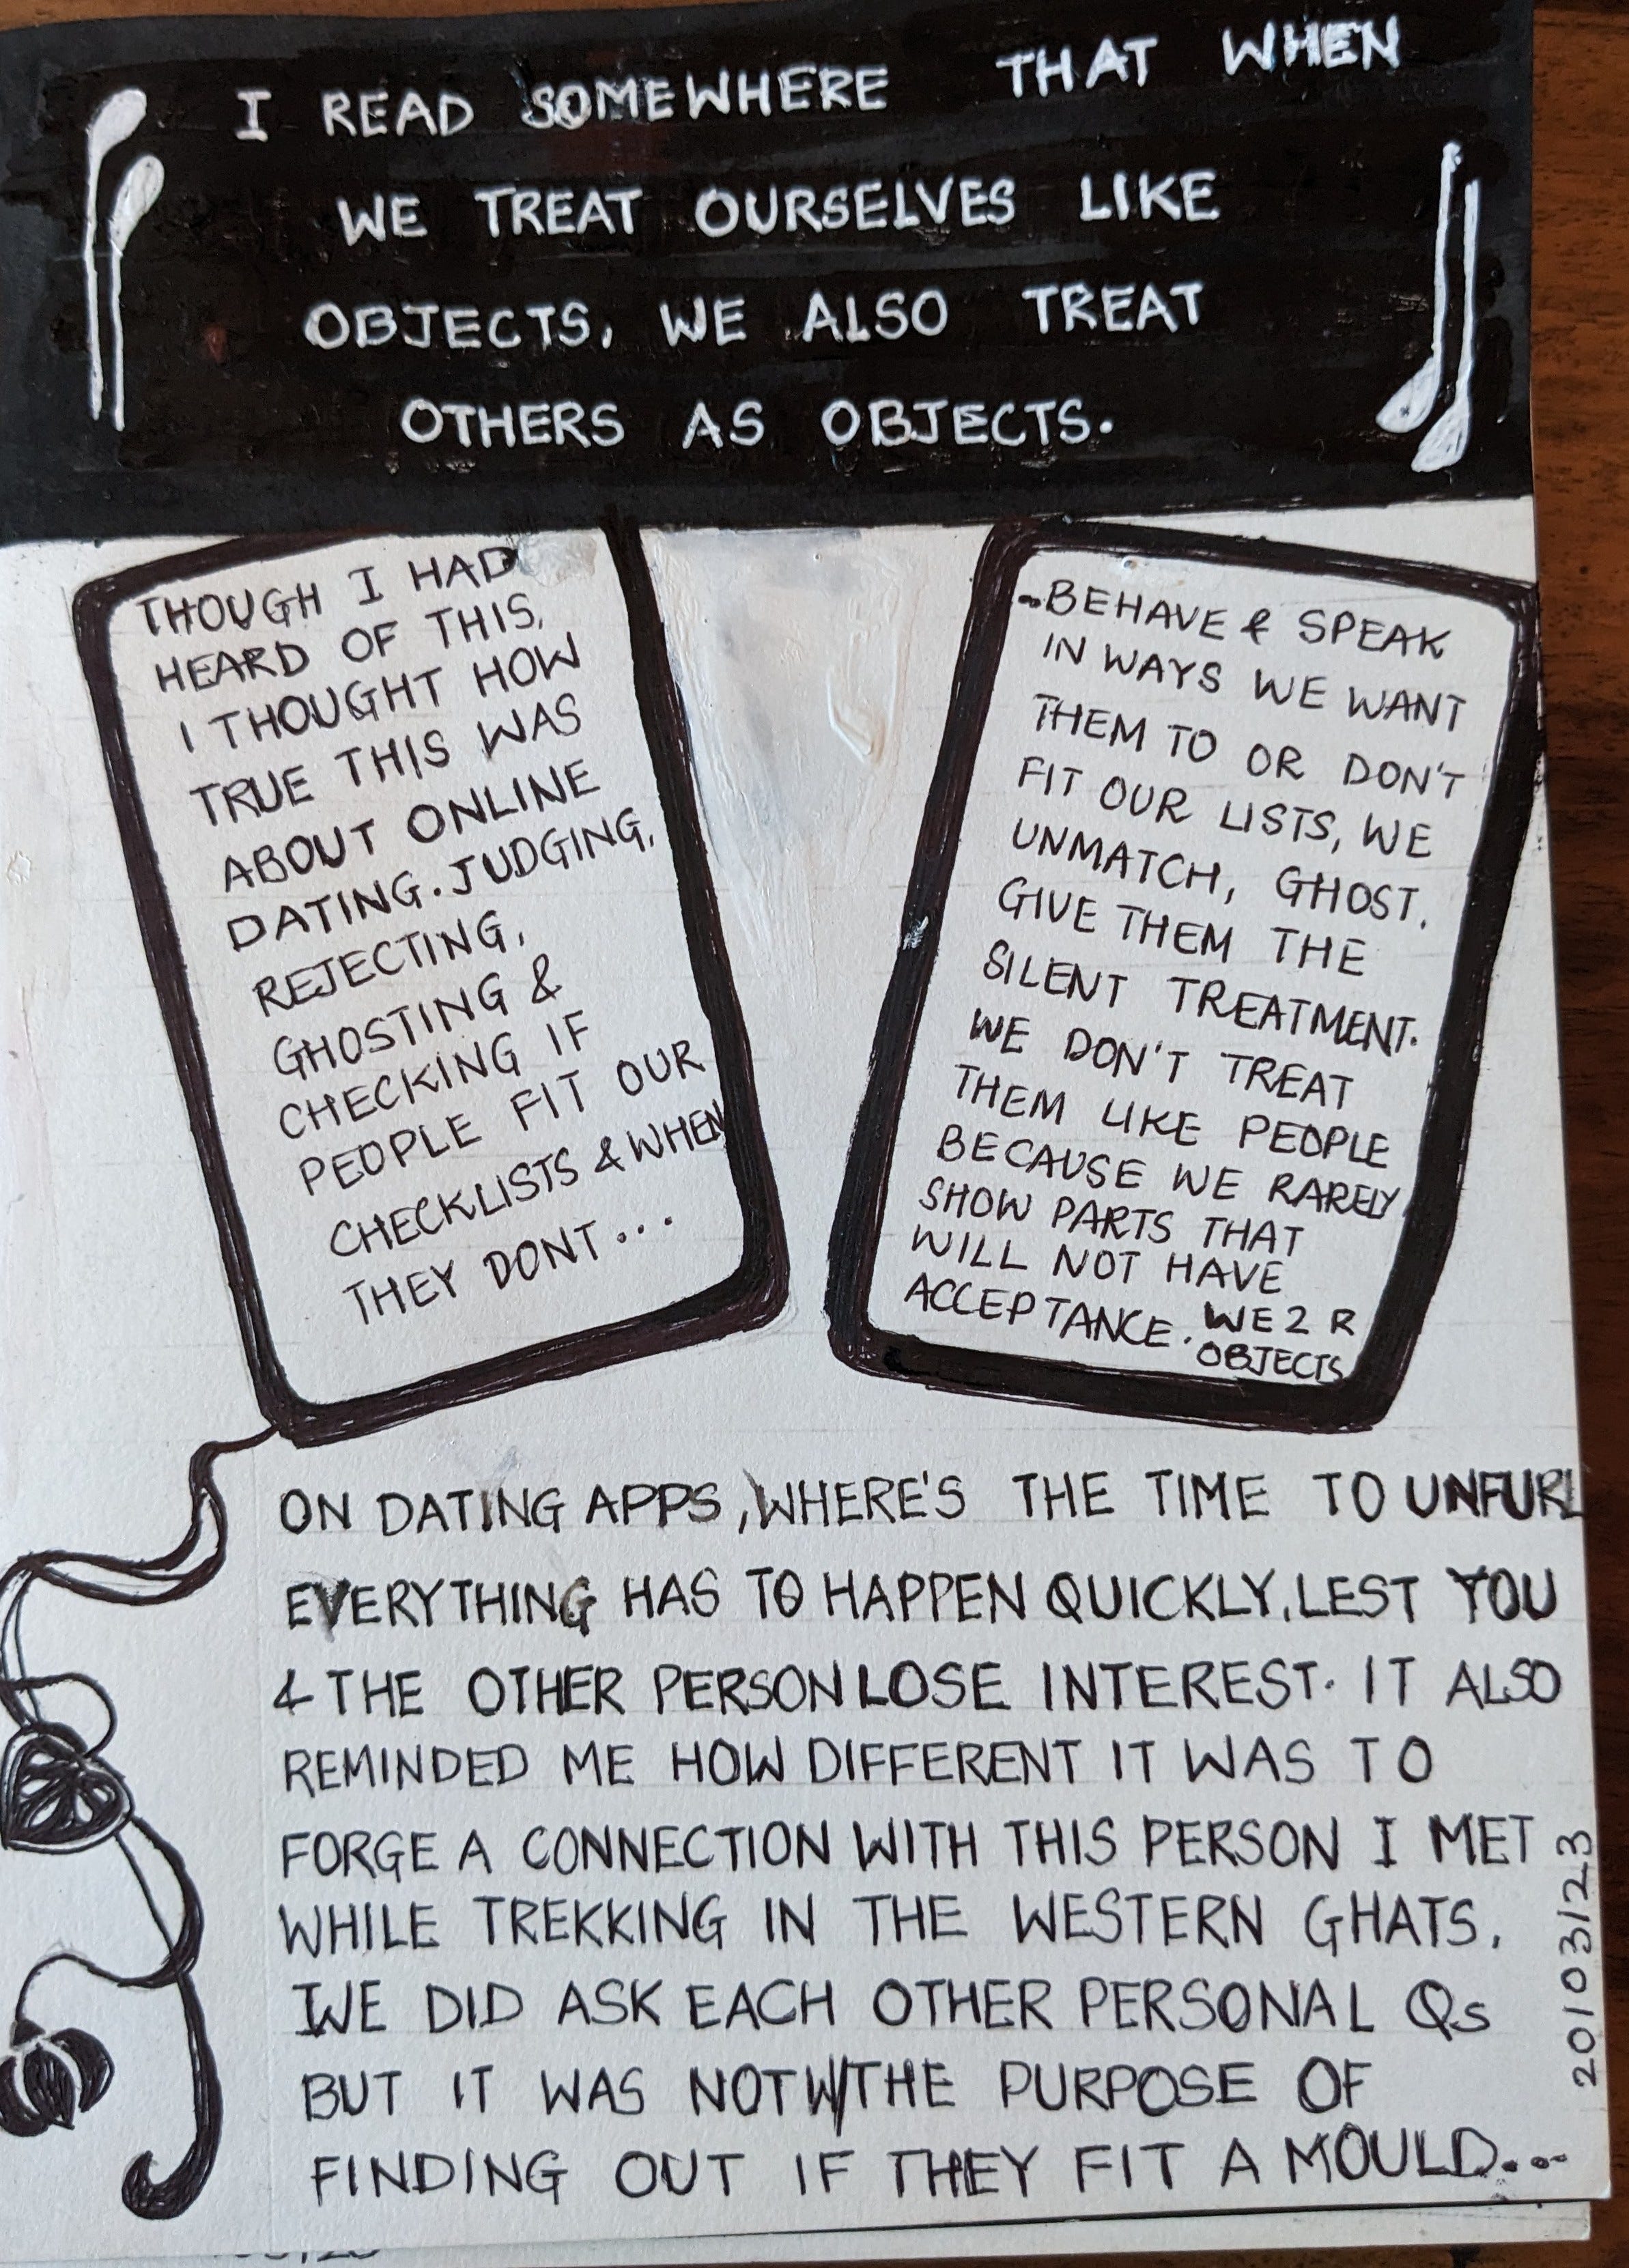 I READ SOMEWHERE THAT WHEN
WE TREAT OURSELVES LIKE
OBJECTS, WE ALSO TREAT
OTHERS AS OBJECTS.
THOUGH I HAD
HEARD OF THIS,
I THOUGHT HOW
TRUE THIS WAS
ABOUT ONLINE
DATING. JUDGING,
REJECTING,
GHOSTING &
CHECKING IF
PEOPLE FIT OUR
CHECKLISTS & WHEN
THEY DONT...
..BEHAVE & SPEAK
IN WAYS WE WANT
THEM TO OR DON'T
FIT OUR LISTS, WE
UNMATCH, GHOST.
GIVE THEM THE
SILENT TREATMENT.
WE DON'T TREAT
THEM LIKE PEOPLE
BECAUSE WE RARELY
SHOW PARTS THAT
WILL NOT HAVE
ACCEPTANCE. WE 2 R
OBJECTS
ON DATING APPS, WHERE'S THE TIME TO UNFURL
EVERYTHING HAS TO HAPPEN QUICKLY, LEST YOU
& THE OTHER PERSON LOSE INTEREST. IT ALSO
REMINDED ME HOW DIFFERENT IT WAS TO
FORGE A CONNECTION WITH THIS PERSON I MET
WHILE TREKKING IN THE WESTERN GHATS.
WE DID ASK EACH OTHER PERSONAL Qs
BUT IT WAS NOT W/ THE PURPOSE OF
FINDING OUT IF THEY FIT A MOULD...
20/03/23